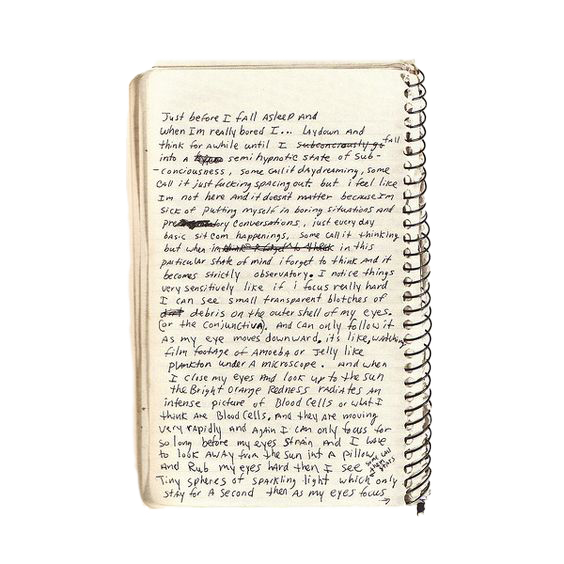 Just before I fall Asleep And
when Im really bored I... Laydown And
think for awhile until I subconciously go fall
into a semi hypnotic state of Sub-
-consciousness, some call it daydreaming, some
call it just fucking spacing out but i feel like
Im not here and it doesnt matter because im
sick of putting myself in boring situations and
conversations, just every day
basic sit com happenings, some call it thinking
but when in this in this
particular state of mind i forget to think and it
becomes strictly observatory. I notice things
very sensitively like if i focus really hard
I can see small transparent blotches of
debris on the outer shell of my eyes.
(or the conjunctiva). And can only follow it
As my eye moves downward. it's like, watching
film footage of Amoeba or Jelly like
plankton under A microscope. and when
I close my eyes And look up to the sun
the Bright Orange Redness radiates an
intense picture of Blood Cells or what I
think Are Blood Cells. And they are moving
very rapidly and Again I can only focus for
so long before my eyes strain and I have
to look AWAY from the sun into A pillow
And Rub my eyes hard then I see some call them stars
Tiny spheres of sparkling light which only
stay for A second then As my eyes focus